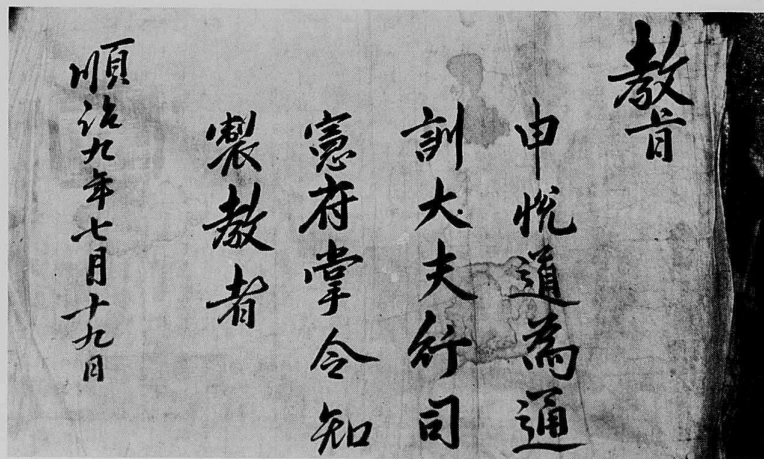 教旨
申悅道為通
訓大夫行司
憲府掌令知
製教者
順治九年七月十九日